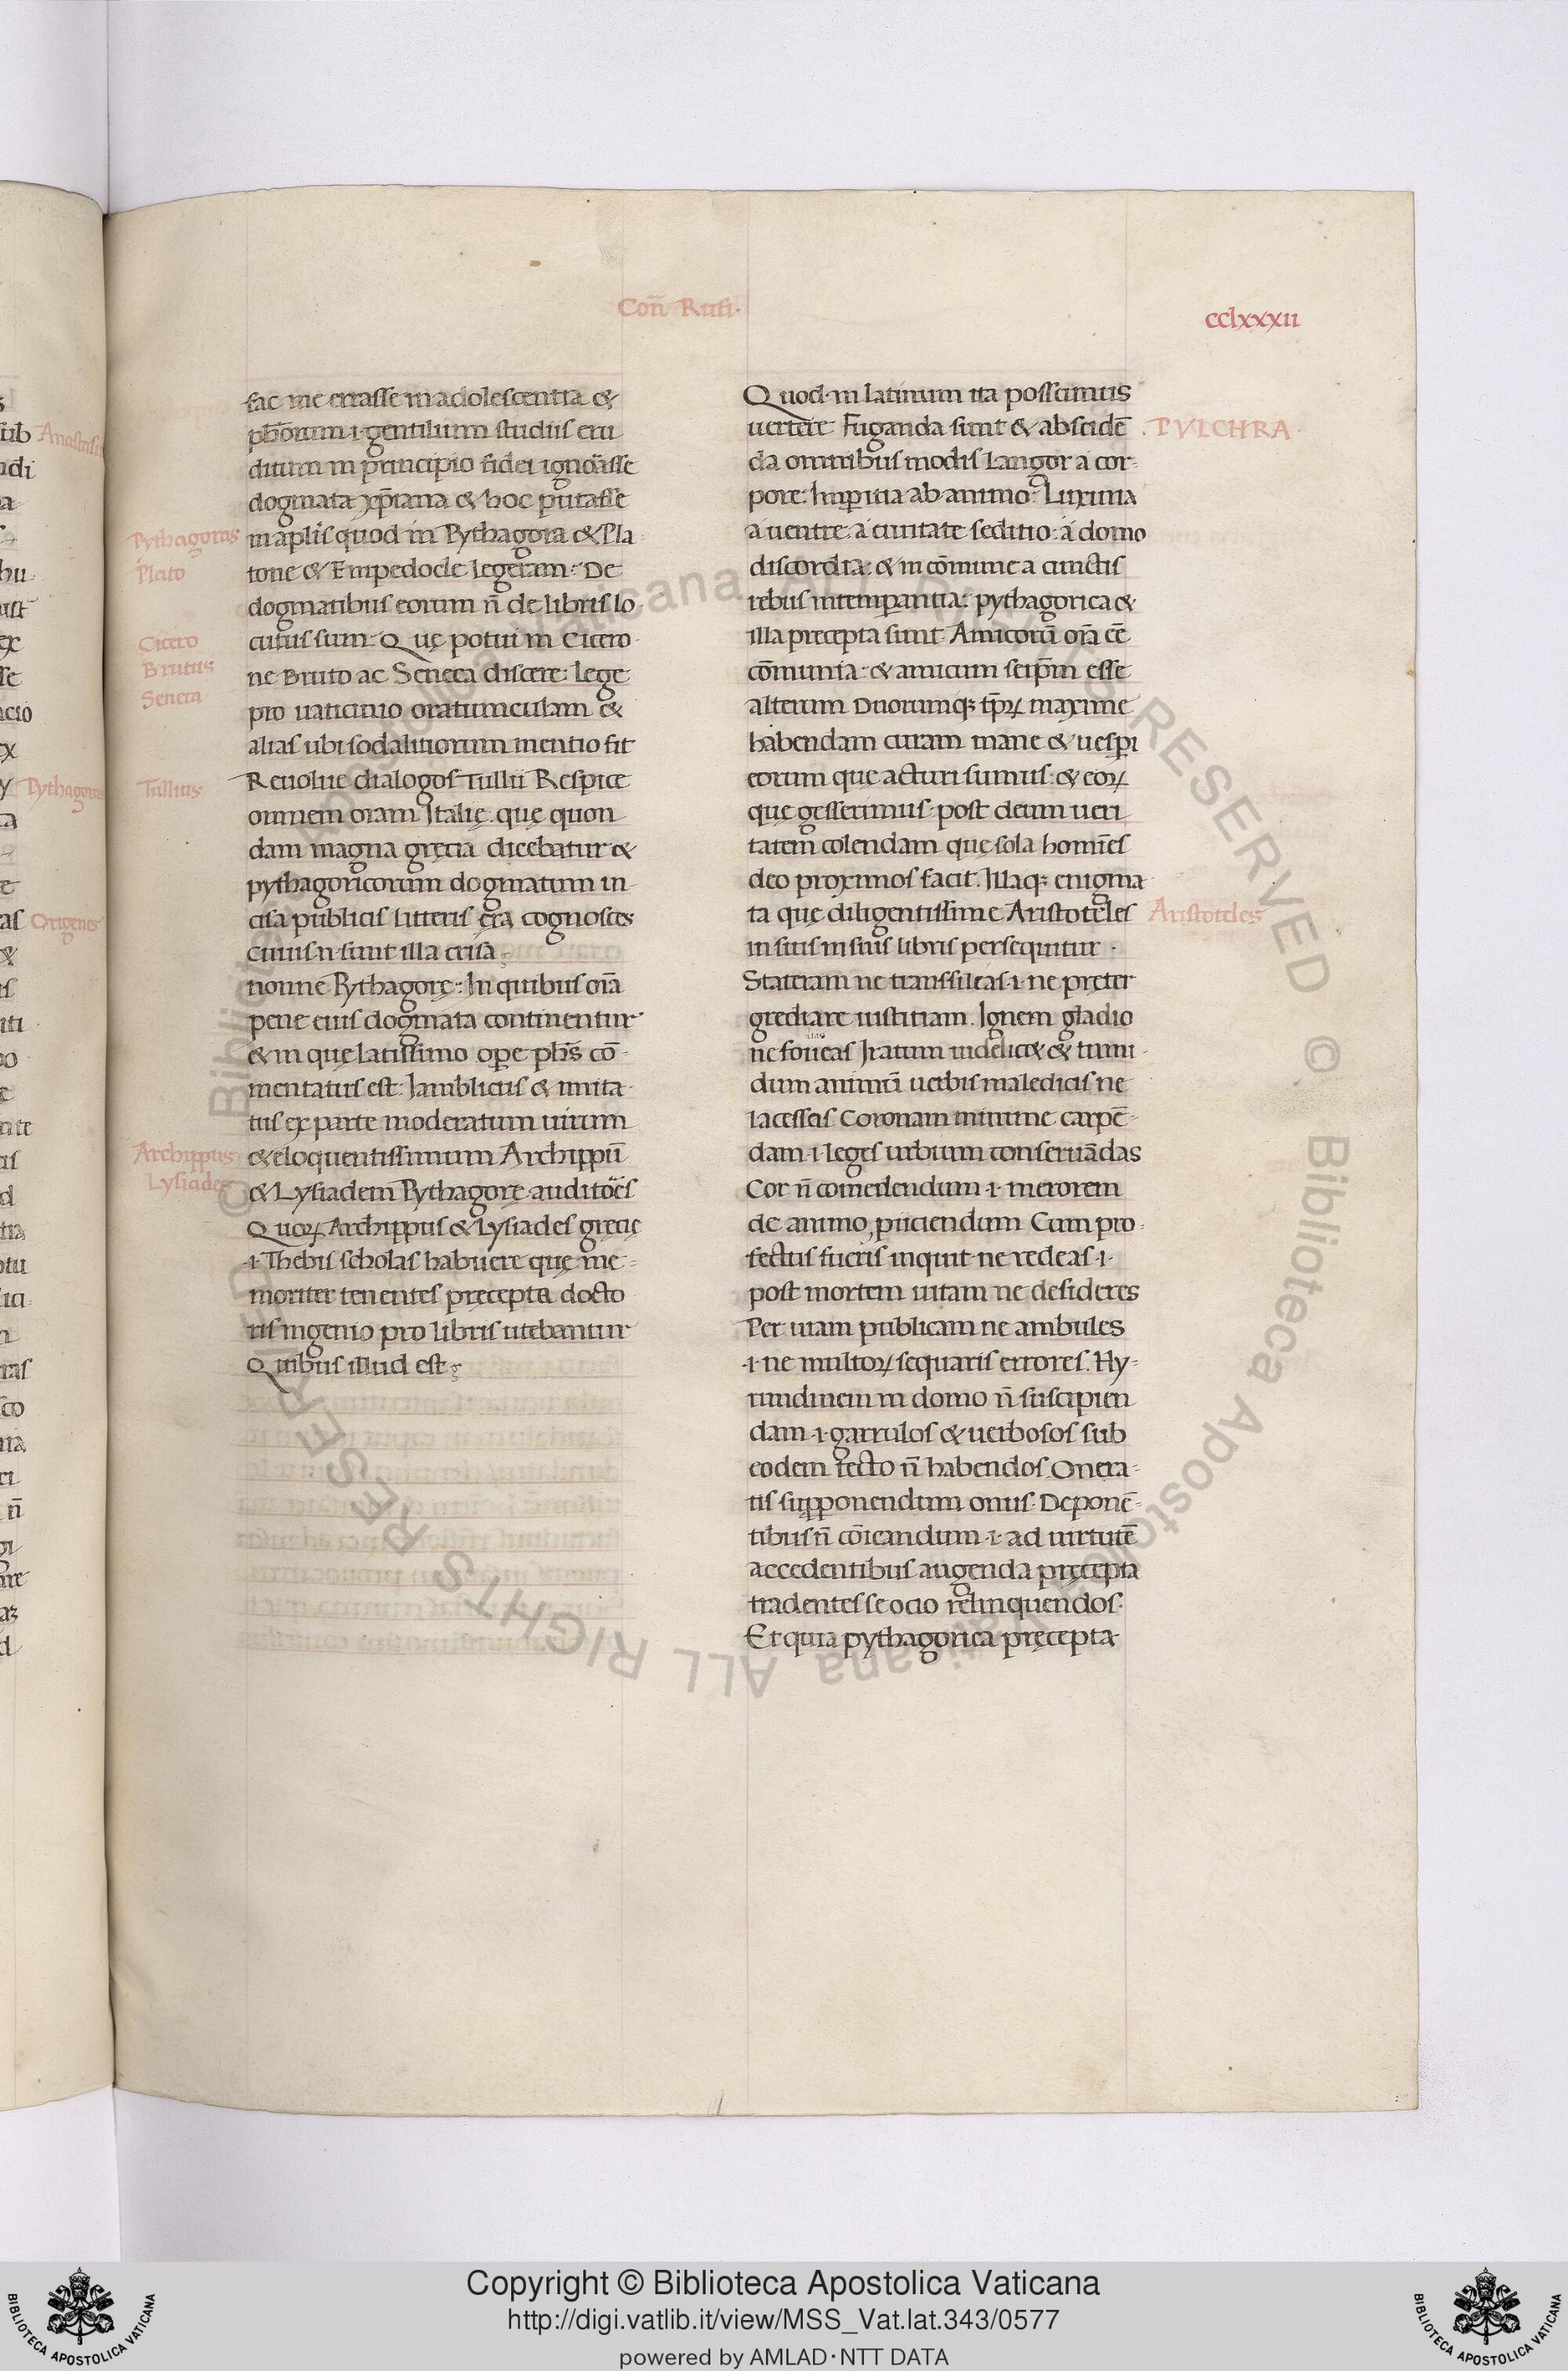 Con̄ Rufi·
cclxxxii
fac me errasse in adolescentia &
ph̄orum ·i· gentilium studiis eru
ditum in principio fidei ignōasse
dogmata xp̄iana & hoc putasse
in ap̄lis quod in Pythagora & Pla
tone & Empedocle legeram: De
dogmatibus eorum n̄ de libris lo
cutus sum: Quę potui in Cicero
ne Bruto ac Seneca discere: lege
pro uaticinio oratiunculam &
alias ubi sodalitiorum mentio fit
Reuolue dialogos Tullii Respice
omnem oram Italię. quę quon
dam magna gręcia dicebatur &
pythagoricorum dogmatum in
cisa publicis litteris ęra cognosces
Cuius .n. sunt illa crisā
nonne Pythagorę: In quibus oīa
pene eius dogmata continentur
& in que latissimo oꝑe ph̄s cō
mentatus est: Iamblicus & imita
tus ex parte moderatum uirum
& eloquentissimum Archippū
& Lysiadem Pythagorę auditōes
Quoꝝ Archippus & Lysiades gręcię
·i· Thebis scholas habuere que me=
moriter tenentes pręcepta docto
ris ingenio pro libris utebantur
Quibus illud est
Pythagoras
Plato
Cicero
Brutus
Seneca
Tullius
Archippus
Lysiades
Quod in latinum ita possumus
uertere Fuganda sunt & abscidē
da omnibus modis Langor a cor=
pore: Imꝑitia ab animo: Luxuria
a uentre: a ciuitate seditio: a domo
discordia: & in cōmune a cunctis
rebus intemꝑantia: pythagorica &
illa precepta sunt Amicorū oīa cē̄
cōmunia: & amicum seip̄m esse
alterum Duorumq; tp̄oꝝ maxime
habendam curam mane & uesꝑi
eorum que acturi sumus: & eoꝝ
quę gesserimus post deum ueri
tatem colendam quę sola homīes
deo proximos facit. Illaq; enigma
ta que diligentissime Aristoteles
in suis in suis libris persequitur
Stateram ne transsileas ·i· ne pręter
grediare iustitiam. Ignem gladio
ne foueas Iratum uidelic& & tumi
dum animū uerbis maledicis ne
lacessas Coronam minime carpē=
dam ·i· leges urbium conseruādas
Cor n̄ comedendum ·i· merorem
de animo ꝓiiciendum Cum pro
fectus fueris inquit ne redeas ·i·
post mortem uitam ne desideres
Per uiam publicam ne ambules
·i· ne multoꝝ sequaris errores. Hy=
rundinem in domo n̄ suscipien
dam ·i· garrulos & uerbosos sub
eodem tecto n̄ habendos Onera=
tis supponendum onus Deponē=
tibus n̄ cōicandum ·i· ad uirtutē
accedentibus augenda pręcepta
tradentes se ocio relinquendos:
Et quia pythagorica pręcepta
PVLCHRA
Aristoteles
Copyright © Biblioteca Apostolica Vaticana
http://digi.vatlib.it/view/MSS_Vat.lat.343/0577
powered by AMLAD·NTT DATA